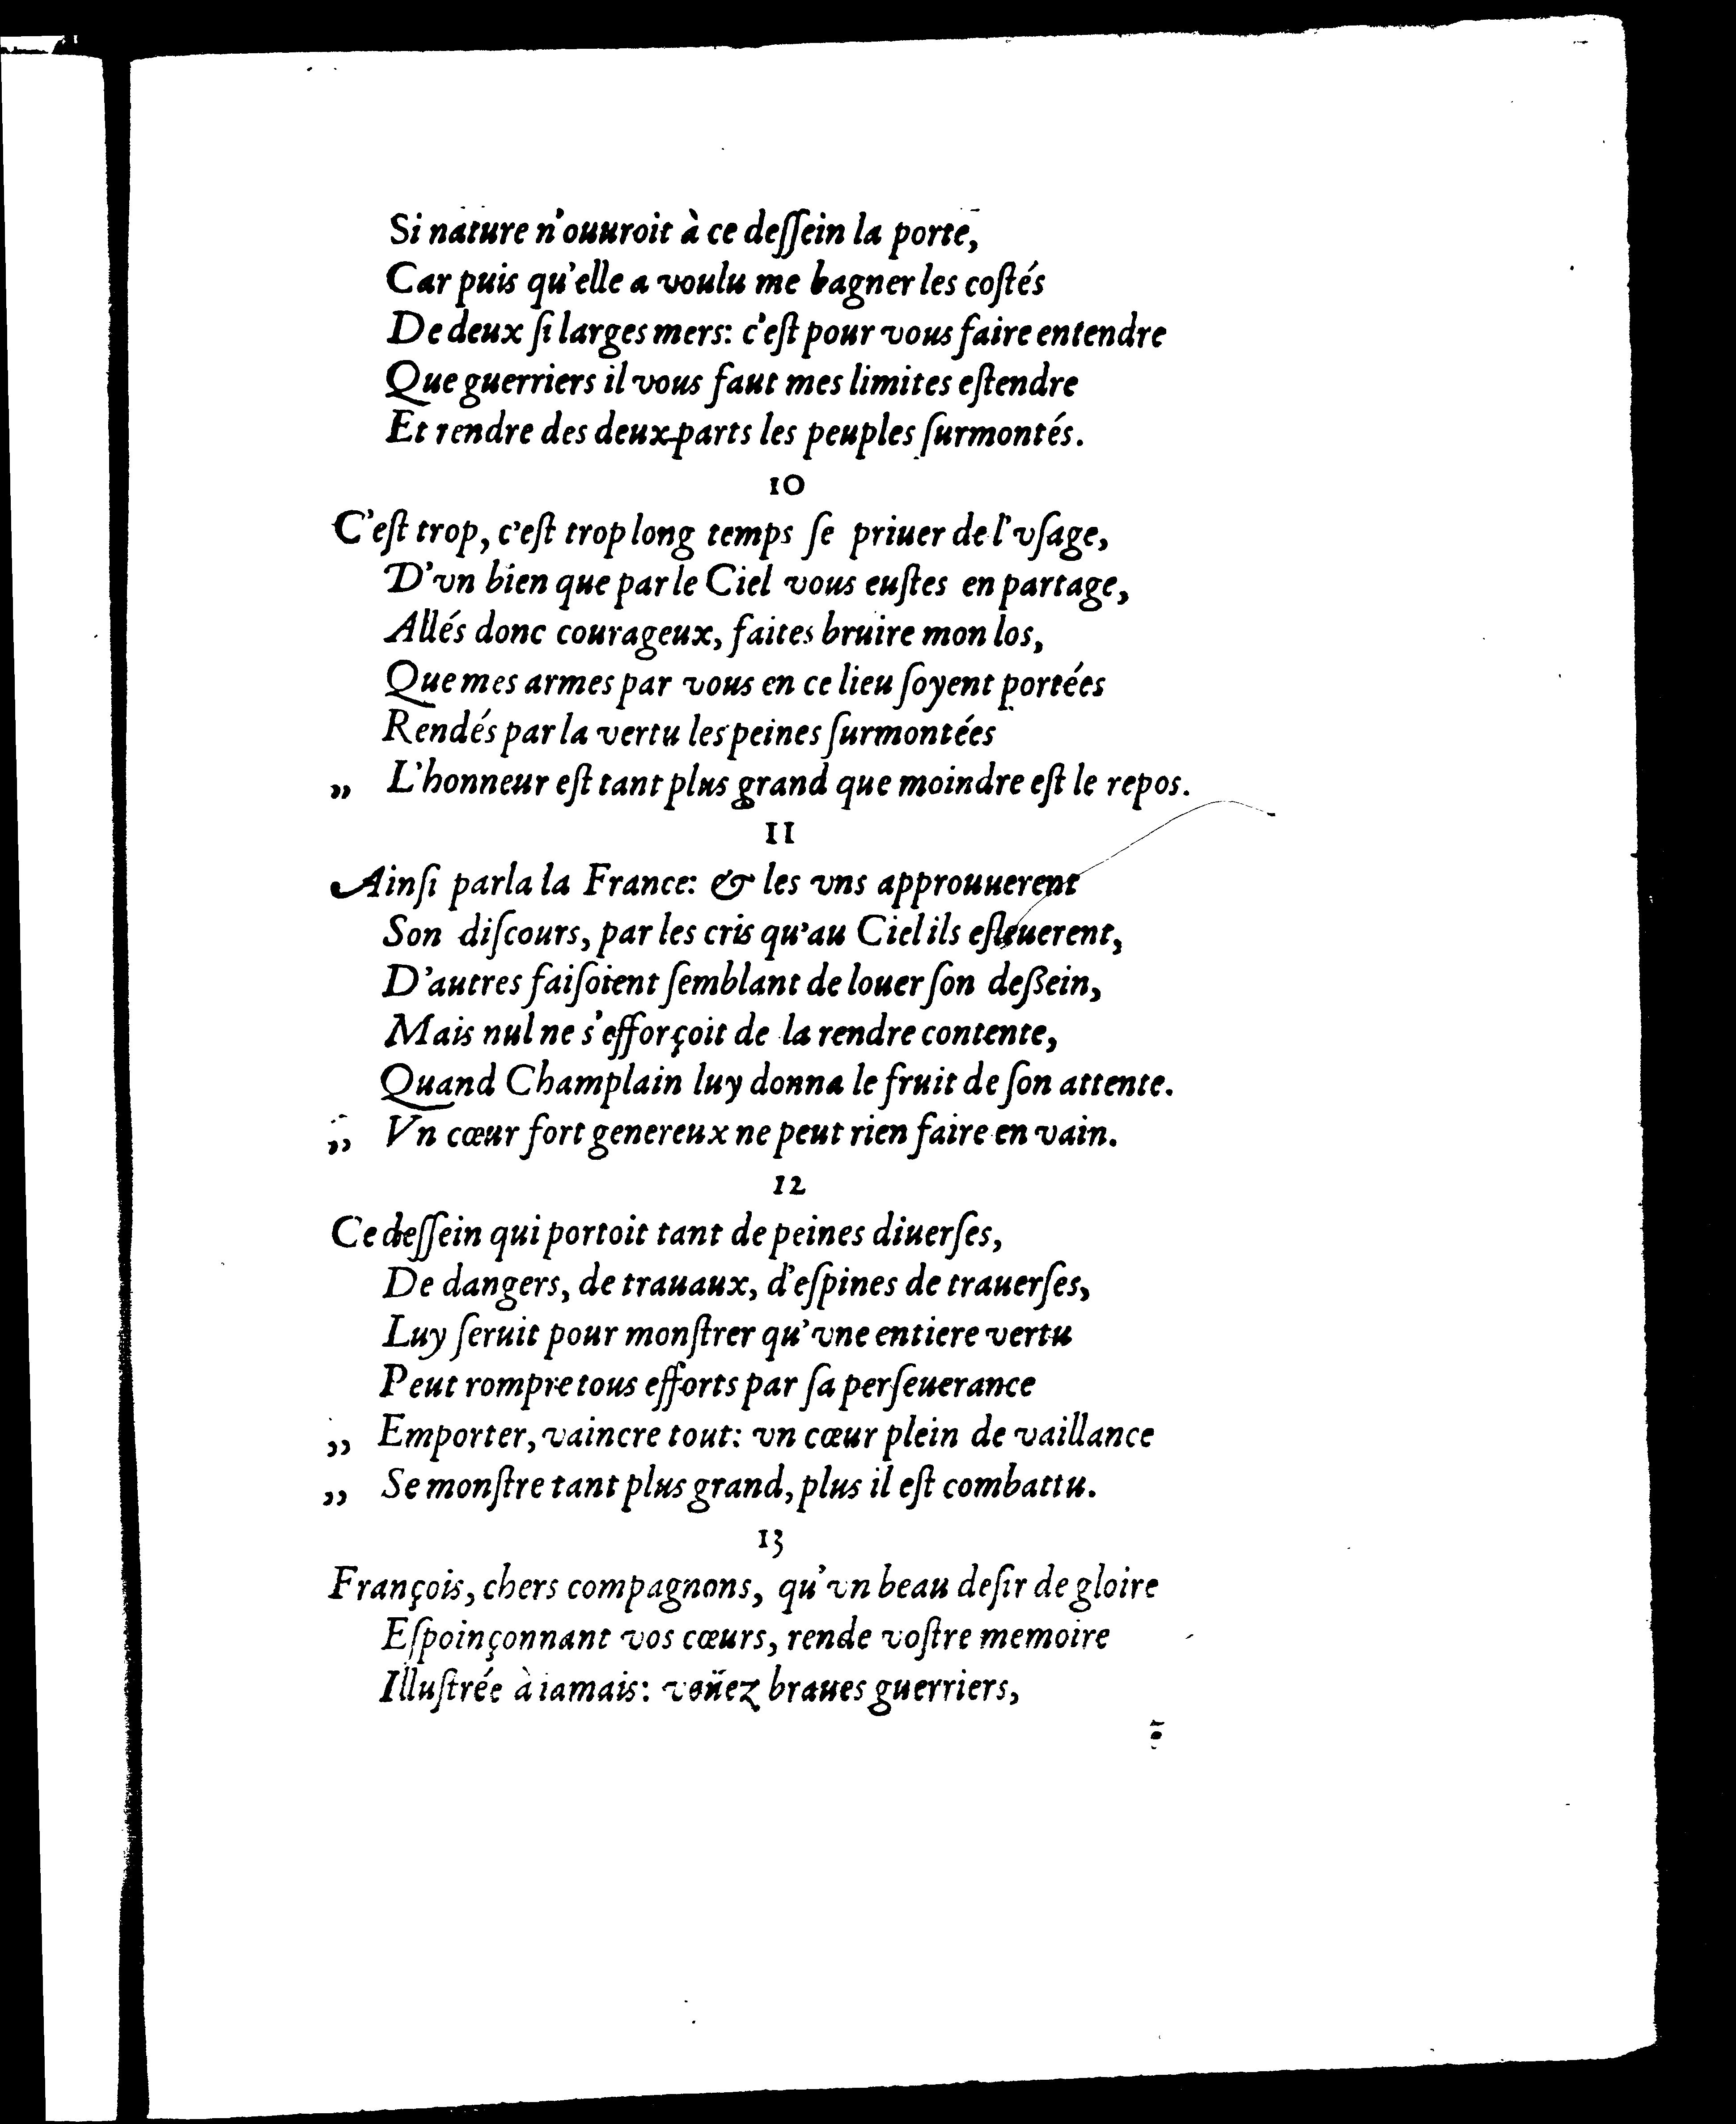 Si nature n'ouuroit à ce deſſein la porte,
Car puis qu'elle a voulu me bagner les coſtés
De deux ſi larges mers: c'eſt pour vous faire entendre
Que guerriers il vous faut mes limites eſtendre
Et rendre des deux parts les peuples ſurmontés.
10
C'eſt trop, c'eſt trop long temps ſe priuer de l'vſage,
D'vn bien que par le Ciel vous euſtes en partage,
Allés donc courageux, faites bruire mon los,
Que mes armes par vous en ce lieu ſoyent portées
Rendés par la vertu les peines ſurmontées
„ L'honneur eſt tant plus grand que moindre eſt le repos.
11
Ainſi parla la France: & les vns approuuerent
Son diſcours, par les cris qu'au Ciel ils eſleuerent,
D'autres faiſoient ſemblant de louer ſon deßein,
Mais nul ne s'efforçoit de la rendre contente,
Quand Champlain luy donna le fruit de ſon attente.
„ Vn cœur fort genereux ne peut rien faire en vain.
12
Ce deſſein qui portoit tant de peines diuerſes,
De dangers, de trauaux, d'eſpines de trauerſes,
Luy ſeruit pour monſtrer qu'vne entiere vertu
Peut rompre tous efforts par ſa perſeuerance
„ Emporter, vaincre tout: vn cœur plein de vaillance
„ Se monſtre tant plus grand, plus il eſt combattu.
13
François, chers compagnons, qu'vn beau deſir de gloire
Eſpoinçonnant vos cœurs, rende voſtre memoire
Illuſtrée à iamais: venez braues guerriers,